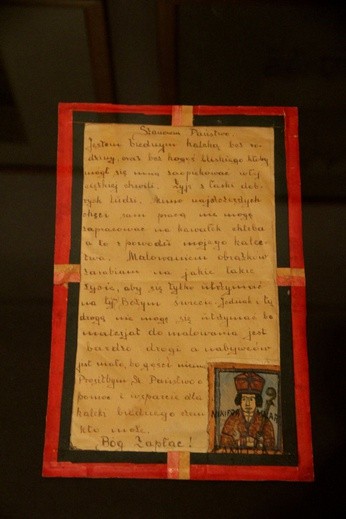 Szanowni Państwo
Jestem biednym kaleką bez ro-
dziny, oraz bez kogoś bliskiego który
mógł się mną zaopiekować w tej
ciężkiej chwili. Żyję z łaski dob-
rych ludzi. Mimo najszczerszych
chęci sam pracą nie mogę
zapracować na kawałek chleba
a to z powodu mojego kalec-
twa. Malowaniem obrazków
zarabiam na jakie takie
życie, aby się tylko utrzymać
na tym Bożym świecie. Jednak i tą
drogą nie mogę się utrzymać bo
materjał do malowania jest
bardzo drogi a nabywców
jest mało, bo gości niema
Prosiłbym Sz Państwo o
pomoc i wsparcie dla
kaleki biednego
kto może.
Bóg Zapłać!
NIKIFOR MALARZ